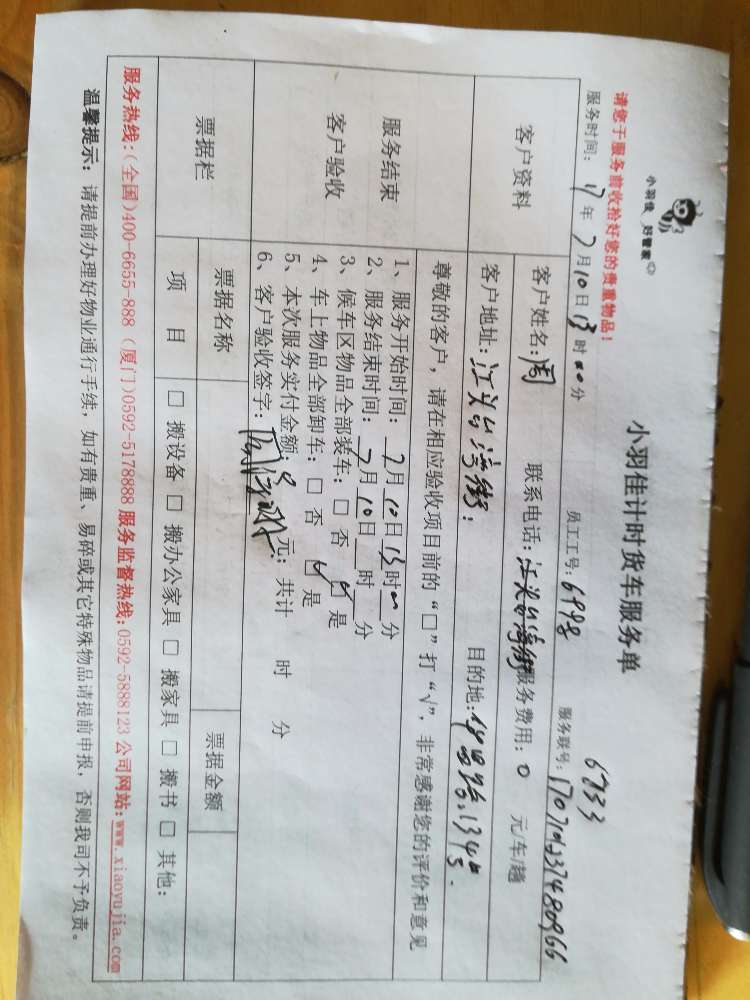 小羽佳 好管家
小羽佳计时货车服务单
6733
请您于服务前收拾好您的贵重物品！
服务时间：17年7月10日13时00分 员工工号：6998 服务联号：
客户资料
客户姓名：周 联系电话：江头台湾街 服务费用：0 元/车/趟
客户地址：江头台湾街； 目的地：
服务结束
客户验收
尊敬的客户，请在相应验收项目前的“□”打“√”，非常感谢您的评价和意见
1、服务开始时间：7月10日13时00分
2、服务结束时间：7月10日 时 分
3、候车区物品全部装车：□ 否 ☑ 是
4、车上物品全部卸车：□ 否 ☑ 是
5、本次服务实付金额：0元；共计 时 分
6、客户验收签字：
票据栏
票据名称 票据金额
项 目 □ 搬设备 □ 搬办公家具 □ 搬家具 □ 搬书 □ 其他：
服务热线：(全国)400-6655-888 (厦门)0592-5178888 服务监督热线:0592-5888123 公司网站:www.xiaoyujia.com
温馨提示：请提前办理好物业通行手续，如有贵重、易碎或其它特殊物品请提前申报，否则我司不予负责。